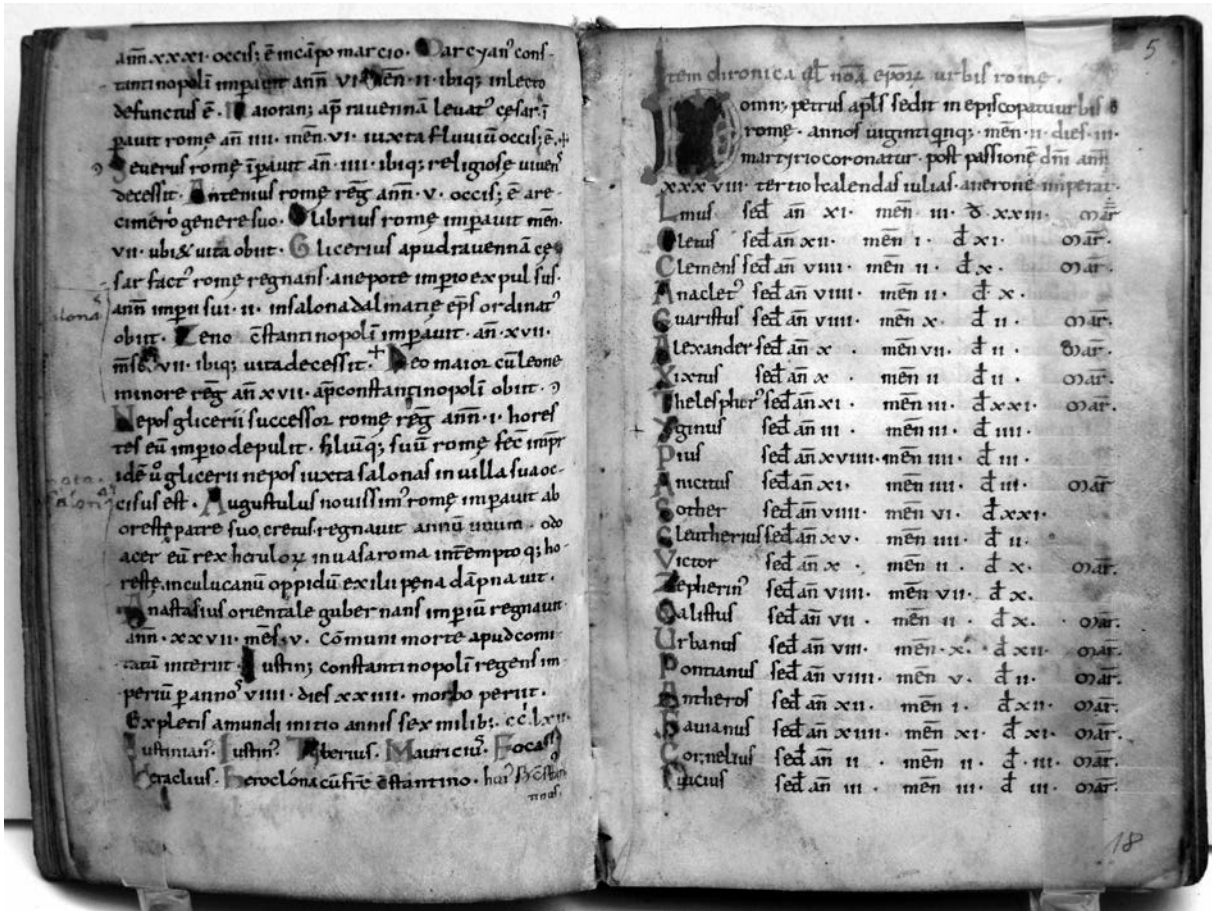 ann̄ xxxi· occis; ē incāpo marcio· Marcyanꝰ cons-
tantinopolī imṗauit ann̄ VI· mēn· II· ibiq; inlecto
defunctus ē· Maioran; ap̄ rauennā leuatꝰ cęsar· ī
ṗauit romę an̄ IIII· mēn· VI· iuxta fluuiū occis; ē·
Seuerus romę īṗauit an̄· IIII· ibiq; religiose uiuenˢ
decessit· Antemius romę reḡ ann̄· V· occis; ē are
cimero genere suo· Olibrius romę imṗauit mēn·
VII· ubi & uita obiit· Glicerius apud rauennā cę
sar factꝰ romę regnans· anepote imṗio expulsus·
ann̄ imṗii sui· II· insalona dalmatię ep̄s ordinatꝰ
obiit· Zeno c̄stantinopolī imṗauit· an̄· XVII·
VII· ibiq; uita decessit· Leo maior cū leone
minore reḡ an̄ XVII· ap̄ constantinopolī obiit·
Nepos glicerii successor romę reḡ ann̄· I· hores
tes eū imṗio depulit· filiūq; suū romę fec̄
idē ū glicerii nepos iuxta salonas in uilla sua oc-
cisus est· Augustulus nouissimꝰ romę imṗauit ab
oreste patre suo eretus· regnauit annū unum· odo
acer eū rex heruloꝝ inuasa roma intempto q; ho
reste· inculucanū oppidū exilii pęna dāpnauit·
Anastasius orientale gubernans imṗiū regnauit
ann̄· XXVII· mēs; V· Cōmuni morte apud comi
tatū interiit· Iustin; constantinopolī regens im
perium ꝑ annoˢ VIIII· dies XXIIII· morbo periit·
Expletis amundi initio annis sex milib;· cc̄· LXII·
Iustinianꝰ· Iustinꝰ· Tyberius· Mauriciꝰ· Focas
Heraclius· Heroclona cū frē c̄stantino·
Item chronica noā epōꝝ urbis romę·
Domin; petrus apl̄s sedit in episcopatu urbis
romę· annos uiginti qnq; mēn· II· dies· III·
martyrio coronatur· post passionē dnī ann̄
XXXVIII· tertio kalendas iulias· anerone imperat·
Linus sed̄ an̄ XI· mēn· III· d̄ XXIII· mar̄
Cletus sed̄ an̄ XII· mēn I· d̄ XI· mar̄·
Clemens sed̄ an̄ VIIII· mēn II· d̄ X· mar̄·
Anacletꝰ sed̄ an̄ VIIII· mēn II· d̄ X·
Euaristus sed̄ an̄ VIIII· mēn X· d̄ II· mar̄·
Alexander sed̄ an̄ X· mēn VII· d̄ II· mar̄·
Xixtus sed̄ an̄ X· mēn II d̄ II· mar̄·
Thelesphorꝰ sed̄ an̄ XI· mēn III· d̄ XXI· mar̄·
Yginus sed̄ an̄ III· mēn III· d̄ IIII·
Pius sed̄ an̄ XVIIII· mēn IIII· d̄ III·
Anicitus sed̄ an̄ XI· mēn IIII· d̄ III· mar̄
Sother sed̄ an̄ VIIII· mēn VI· d̄ XXI·
Eleutherius sed̄ an̄ XV· mēn IIII· d̄ II·
Victor sed̄ an̄ X· mēn II· d̄ X· mar̄·
Zepherinꝰ sed̄ an̄ VIII· mēn VII· d̄ X·
Calistus sed̄ an̄ VII· mēn II· d̄ X· mar̄·
Urbanus sed̄ an̄ VIII· mēn· X· d̄ XII· mar̄·
Pontianus sed̄ an̄ VIIII· mēn V· d̄ II· mar̄·
Antheros sed̄ an̄ XII· mēn I· d̄ XII· mar̄·
Fauianus sed̄ an̄ XIII· mēn XI· d̄ XI· mar̄·
Cornelius sed̄ an̄ II· mēn II· d̄· III· mar̄·
Lucius sed̄ an̄ III· mēn III· d̄ III· mar̄·
5
18